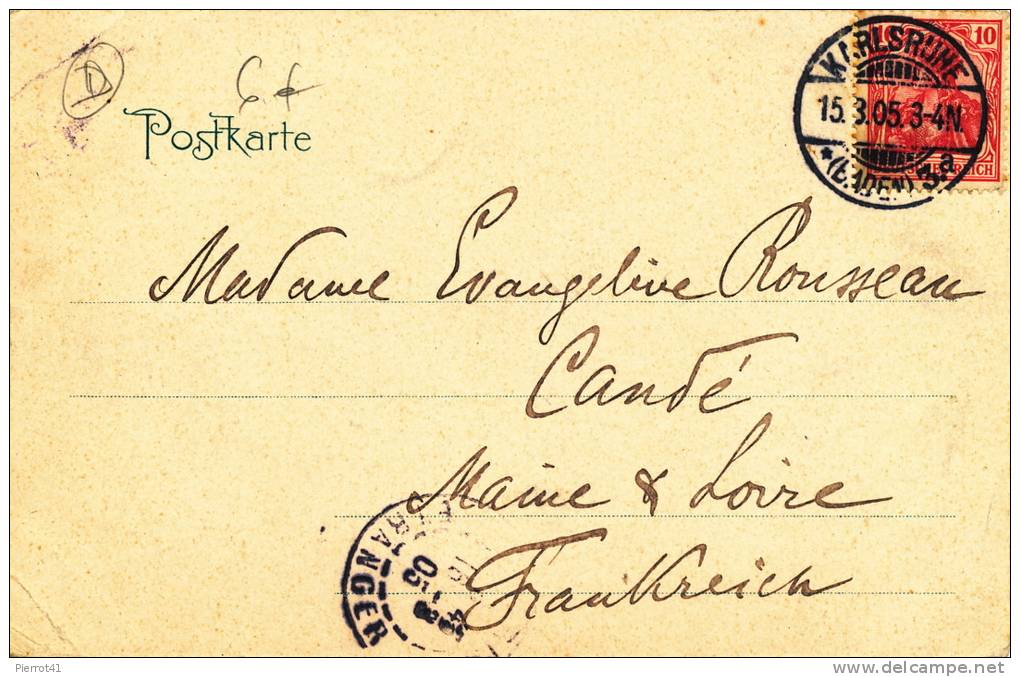 D
Postkarte
KARLSRUHE
15.3.05.3-4N.
*(BADEN) 3.a
10
10
REICH
Madame Evangeline Rousseau
Candé
Maine & Loire
Frankreich
ETRANGER
05
Pierrot41
www.delcampe.net